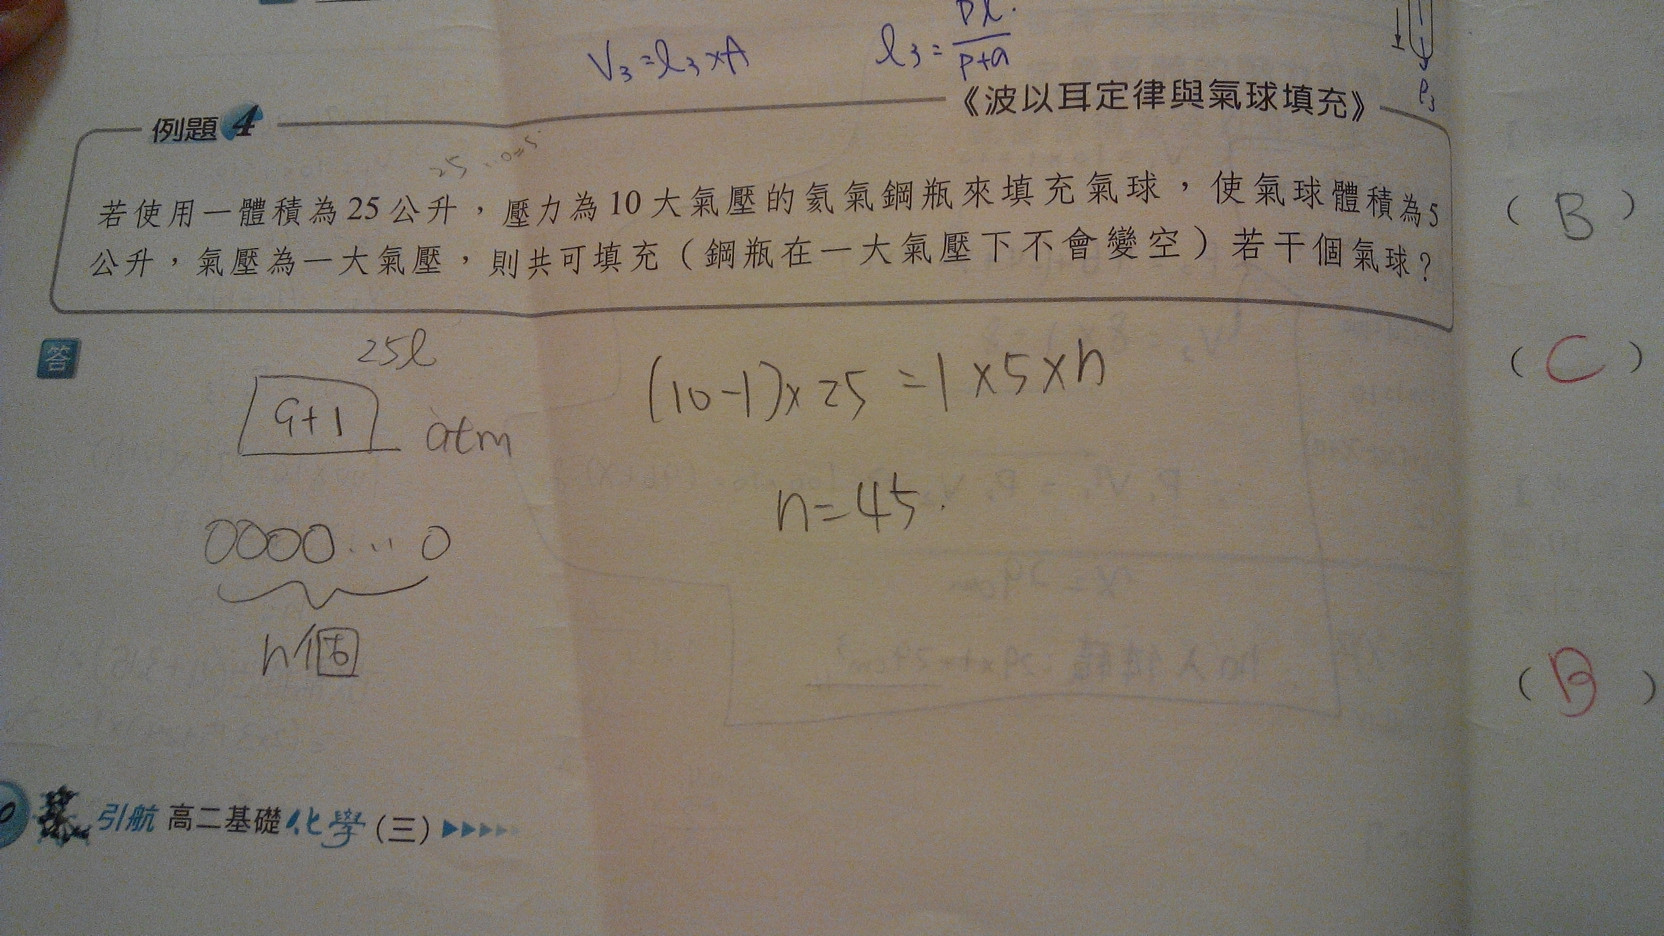 V₃=l₃×A
l₃=Pl/P+a
P₃
《波以耳定律與氣球填充》
例題4
若使用一體積為25公升,壓力為10大氣壓的氦氣鋼瓶來填充氣球,使氣球體積為5
公升,氣壓為一大氣壓,則共可填充(鋼瓶在一大氣壓下不會變空)若干個氣球?
(B)
答
25l
9+1 atm
(10-1)×25=1×5×n
(C)
n=45.
0000...0
n個
(B)
引航 高二基礎化學(三)